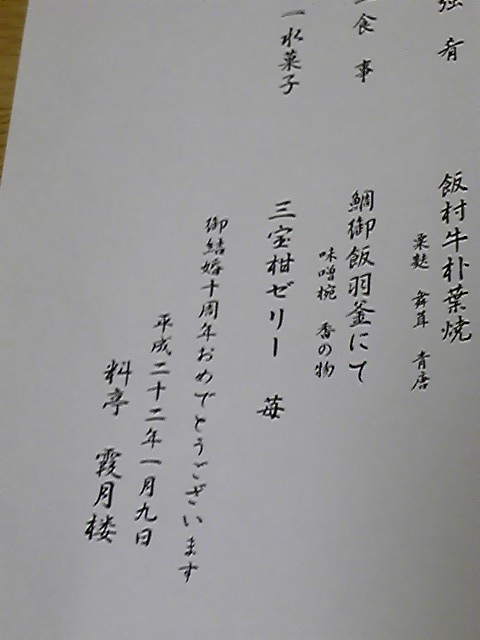 強肴
飯村牛朴葉焼
粟麩 舞茸 青唐
一食事
鯛御飯羽釜にて
味噌椀 香の物
一水菓子
三宝柑ゼリー 苺
御結婚十周年おめでとうございます
平成二十二年一月九日
料亭 霞月楼